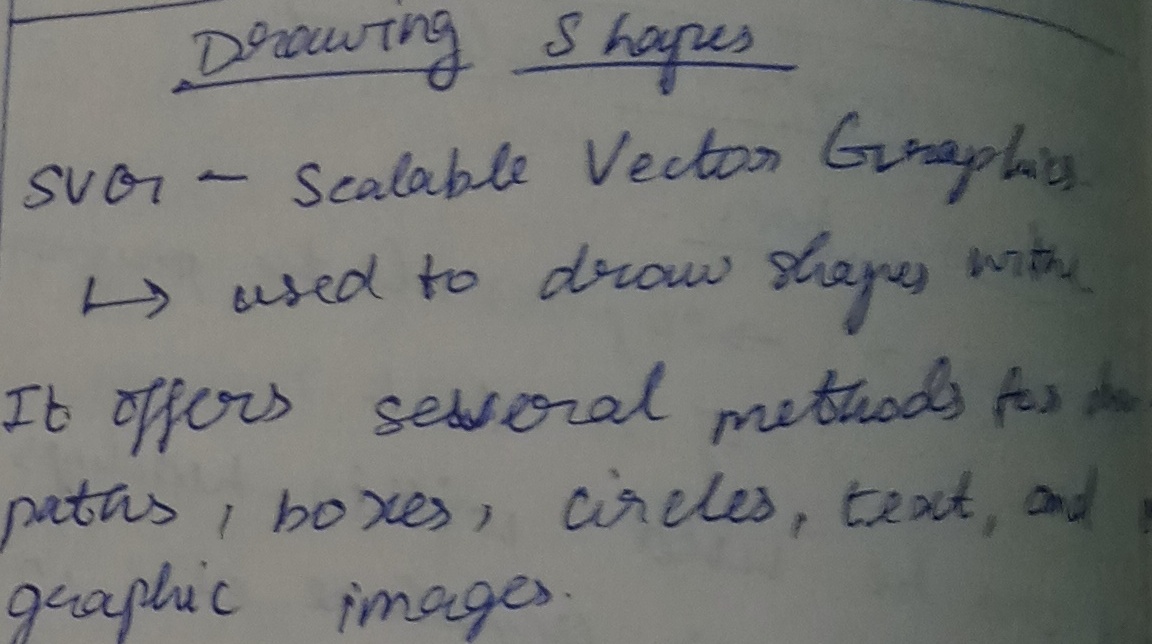 Drawing Shapes
SVG - Scalable Vector Graphics
↳ used to draw shapes with
It offers several methods for
paths, boxes, circles, text, and
graphic images.